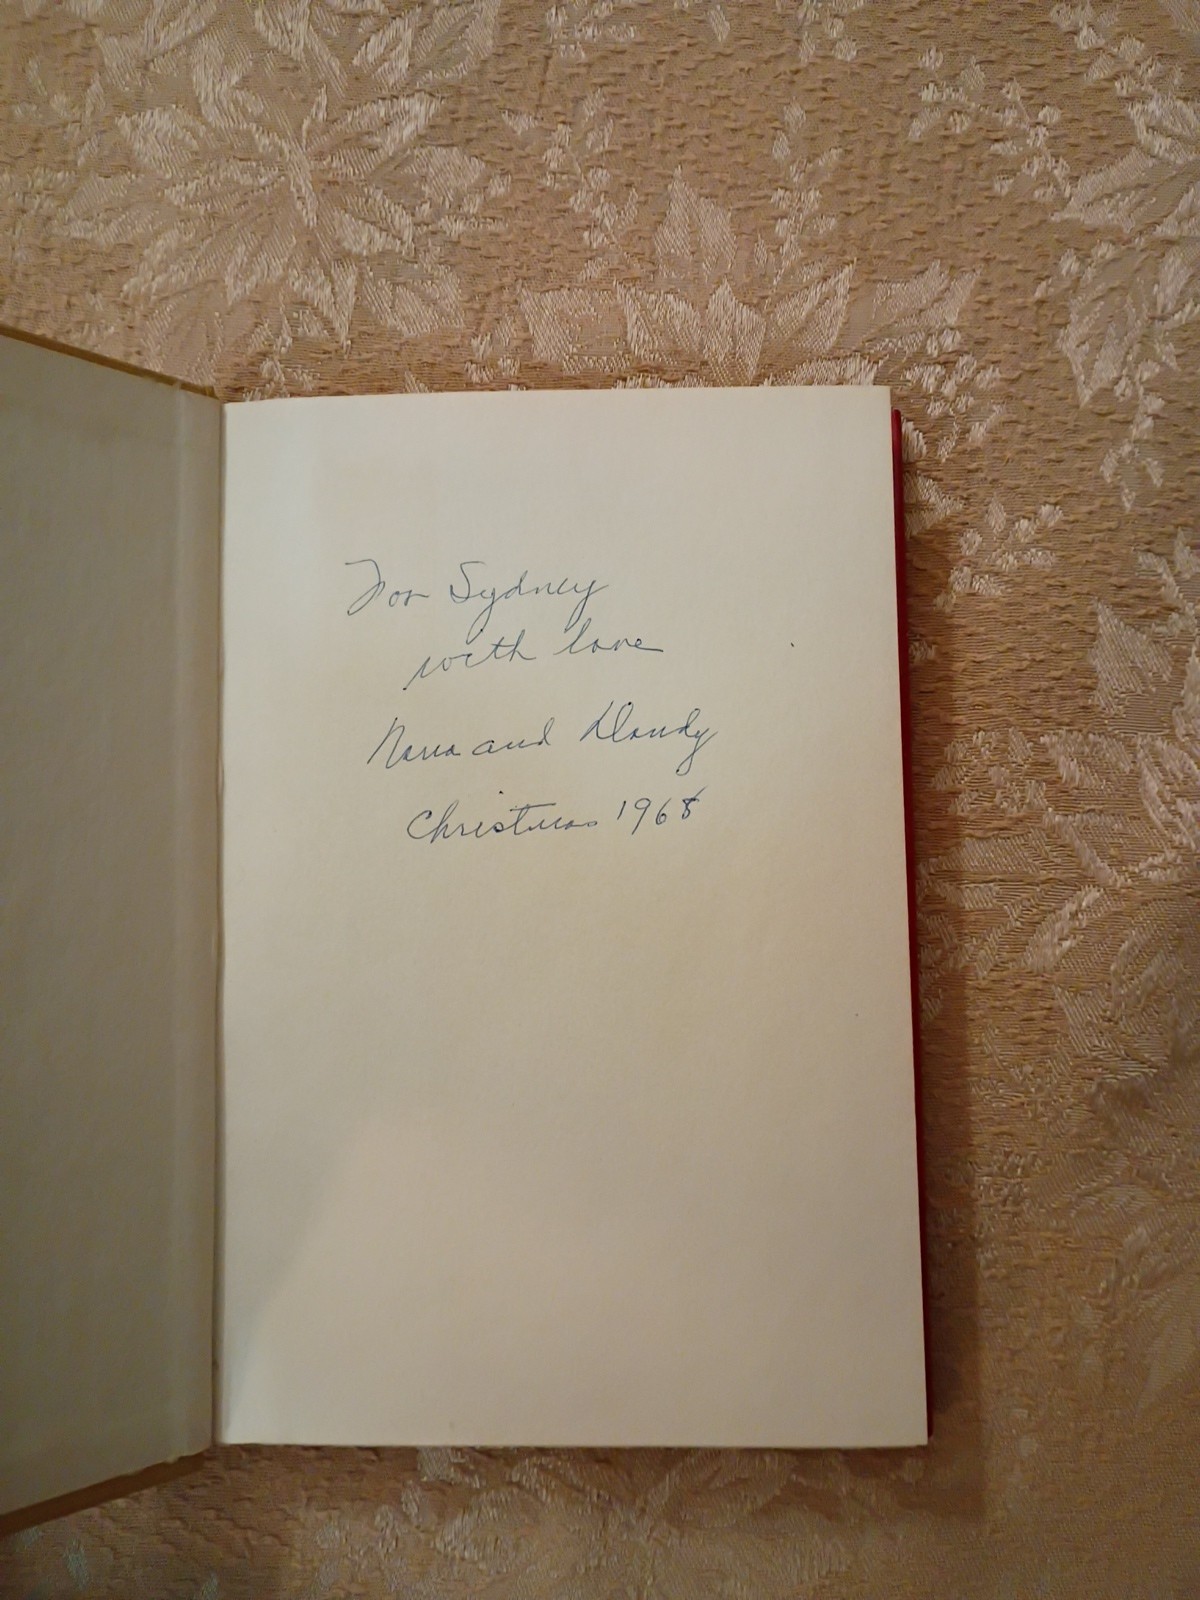 For Sydney
with love
Nana and Dandy
Christmas 1968